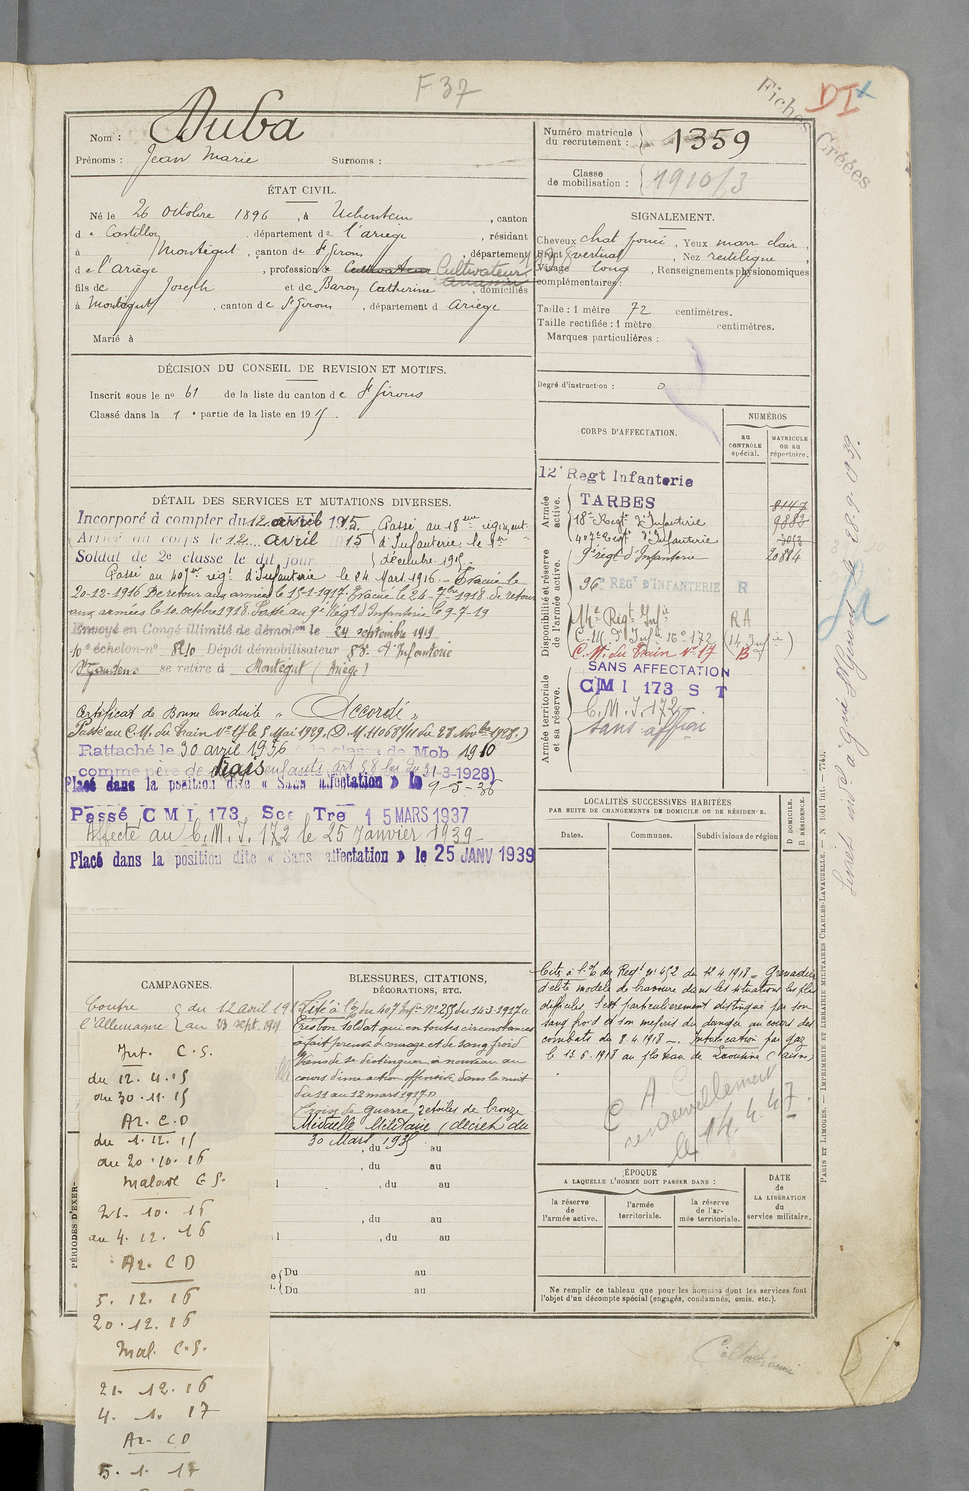 F 37
Fiches Créées
DI
Nom : Duba
Prénoms : Jean Marie Surnoms :
Numéro matricule du recrutement : 1359
Classe de mobilisation : 1910/3
ÉTAT CIVIL.
Né le 26 octobre 1896, à Uchentein, canton
de Castillon, département de l'ariège, résidant
à Montégut, canton de St Girons, département
de l'Ariège, profession de Cultivateur Cultivateur
fils de Joseph et de Baron Catherine, domiciliés
à Montégut, canton de St Girons, département d Ariège
Marié à
SIGNALEMENT.
Cheveux chat foncé, Yeux marr clair,
Front vertical, Nez rectiligne,
Visage long, Renseignements physionomiques
complémentaires :
Taille : 1 mètre 72 centimètres.
Taille rectifiée : 1 mètre centimètres.
Marques particulières :
Degré d'instruction : 0
DÉCISION DU CONSEIL DE REVISION ET MOTIFS.
Inscrit sous le no 61 de la liste du canton de St Girons
Classé dans la 1e partie de la liste en 1915.
CORPS D'AFFECTATION.
NUMÉROS
au CONTRÔLE spécial.
MATRICULE ou au répertoire.
Armée active.
12e Regt Infanterie
TARBES
8147
18e Regt d'Infanterie 9883
407e Regt d'Infanterie
Disponibilité et réserve de l'armée active.
9e régt d'Infanterie 20884
96e REGt D'INFANTERIE R
14e Regt Infie RA
C.M. d'Inf. 16e 172 (14 Infie)
C.M. du Train No 17 B
SANS AFFECTATION
CMI 173 S T
Armée territoriale et sa réserve.
C.M.I. 172
sans affon
DÉTAIL DES SERVICES ET MUTATIONS DIVERSES.
Incorporé à compter du 12 avril 1915. Passé au 18eme régiment
Arrivé au corps le 12 avril 1915 d'Infanterie le 1er
Soldat de 2e classe le dit jour décembre 1915
Passé au 407me régt d'Infanterie le 24 Mars 1916 - Evacué le
20-12-1916 De retour aux armées le 15-1-1917. Evacué le 26-7bre 1918 de retour
aux armées le 10 octobre 1918. Passé au 9e Régt d'Infanterie le 9-7-19
Envoyé en Congé illimité de démobon le 24 septembre 1919
10e échelon no R10 Dépôt démobilisateur 83e d'Infanterie
St Gaudens se retire à Montégut (Ariège)
Certificat de Bonne Conduite " Accordé "
Passé au C.M. du Train No 17 le 5 Mai 1929. (D.M. 11068/11 du 28 Novbre 1928.)
Rattaché le 30 avril 1936 à la classe de Mob 1910
comme père de trois enfants (art 58 loi du 31-3-1928)
Placé dans la position dite « Sans affectation » le 9-5-36
Passé CMI 173 Sec Tre 15 MARS 1937
Affecté au C.M.I. 172 le 25 Janvier 1939
Placé dans la position dite « Sans affectation » le 25 JANV 1939
LOCALITÉS SUCCESSIVES HABITÉES
PAR SUITE DE CHANGEMENTS DE DOMICILE OU DE RÉSIDENCE.
Dates.
Communes.
Subdivisions de région
D DOMICILE.
R RÉSIDENCE.
CAMPAGNES.
Contre du 12 avril 1915
l'Allemagne au 23 sept. 1919
Int. C.S.
du 12.4.15
au 30.11.15
Ar. C.D
du 1.12.15
au 20.10.16
Malade C.S.
21.10.16
au 4.12.16
Ar. C D
5.12.16
20.12.16
Mal. C.S.
21.12.16
4.1.17
Ar. C D
5.1.17
BLESSURES, CITATIONS,
DÉCORATIONS, ETC.
Cité à l'O du 407 Infie No 255 du 14-3-1917 «
Très bon soldat qui en toutes circonstances
a fait preuve de courage et de sang froid
Vient de se distinguer à nouveau au
cours d'une action offensive dans la nuit
du 11 au 12 mars 1917 »
Croix de guerre 2 étoiles de bronze
Médaille Militaire (décret du
30 Mars 1935
Cité à l'O du Régt no 452 du 12 4 1918 « Grenadier
d'élite modèle de bravoure dans les situations les plus
difficiles s'est particulièrement distingué par son
sang froid et son mépris du danger au cours des
combats du 8.4.1918 ». Intoxication par gaz
le 13.6.1918
C A
renouvellement
le 14.4.47
PÉRIODES D'EXER-
, du au
, du au
, du au
, du au
, du au
Du au
Du au
ÉPOQUE
A LAQUELLE L'HOMME DOIT PASSER DANS :
la réserve de l'armée active.
l'armée territoriale.
la réserve de l'armée territoriale.
DATE de LA LIBÉRATION du service militaire.
Ne remplir ce tableau que pour les hommes dont les services font
l'objet d'un décompte spécial (engagés, condamnés, omis, etc.).
PARIS ET LIMOGES. — IMPRIMERIE ET LIBRAIRIE MILITAIRES CHARLES-LAVAUZELLE. — N 1001 int. — 7745.